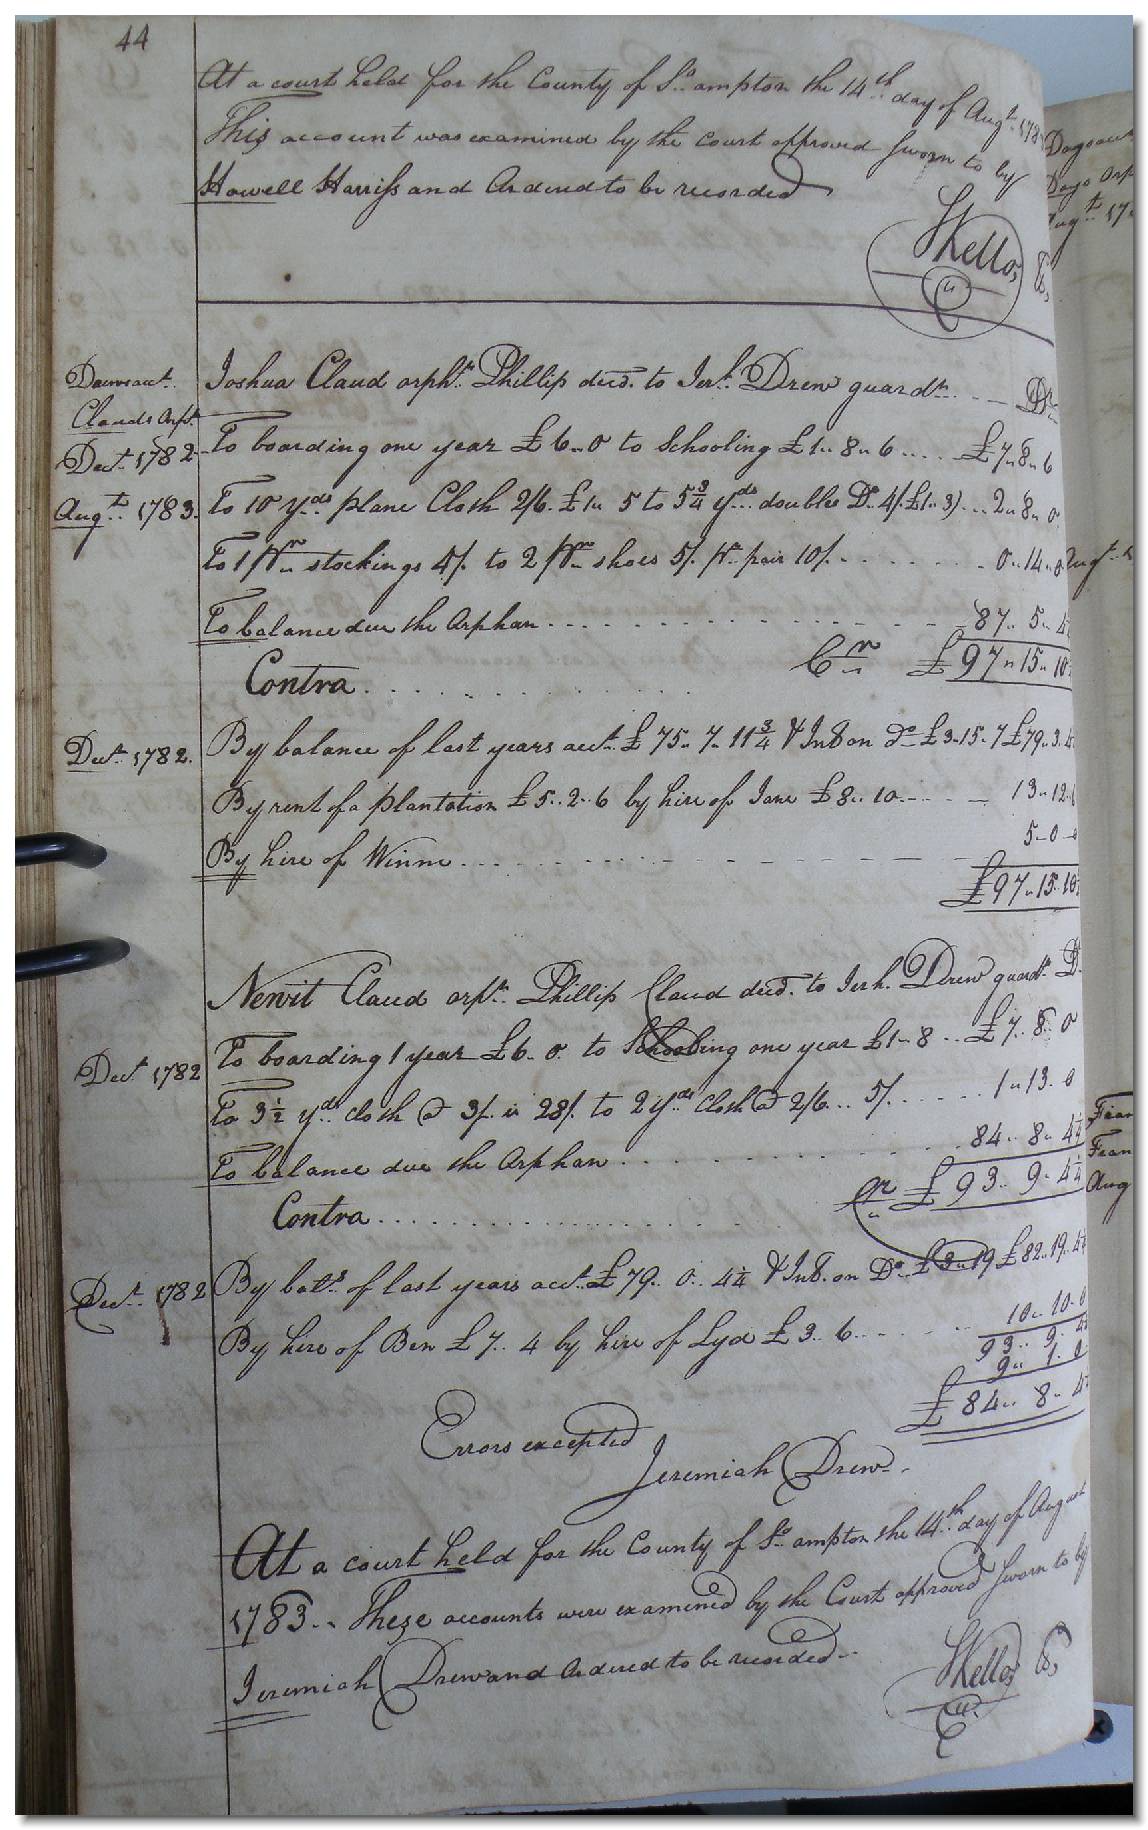 44
At a court held for the County of So. ampton the 14th day of Augt. 178
This account was examined by the court approved Sworn to by
Howell Harriss and Ordered to be recorded
SKello, C,
Clauds Orp.
Joshua Claud orpht. Phillip decd. to Jerh. Drew guardn. Dr
Dect. 1782 To boarding one year £6..0 to Schooling £1..8..6 .... £7..8..6
Augt. 1783. To 10 yds. plane Cloth 2/6. £1.. 5 to 5¾ yds. double Do. 4/. £1..3) ... 2..8..0
To 1 pr. stockings 4/. to 2 pr. shoes 5/. pr. pair 10/. 0..14..0
To balance due the Orphan 87.. 5.. 4
Cr £97..15..10
Contra
Dect. 1782. By balance of last years acct. £75..7..11¾ & Int. on Do £3.15..7 £79..3..
By rent of a plantation £5..2..6 by hire of Jane £8..10 13..12..
By hire of Winne 5..0..
£97..15..10
Newit Claud orpt. Phillip Claud decd. to Jerh. Drew guardn. D
Dect 1782 To boarding 1 year £6..0. to Schooling one year £1..8 .. £7..8..0
To 3½ yds. cloth @ 3/. is 28/. to 2 yds. cloth @ 2/6 ... 5/. 1..13..0
To balance due the Orphan 84.. 8.. 4¼
Cr £93.. 9.. 4¼
Contra
Dect. 1782 By bale. of last years acct. £79.. 0.. 4¼ & Int. on Do. £3..19 £82..19..4¼
By hire of Ben £7.. 4 by hire of Lyd £3.. 6 10..10..0
93.. 9.. 4
9.. 1.. 0
£84.. 8.. 4
Errors excepted
Jeremiah Drew
At a court held for the County of So. ampton the 14th. day of August
1783.. These accounts were examined by the Court approved Sworn to by
Jeremiah Drew and Ordered to be recorded
SKello, C,